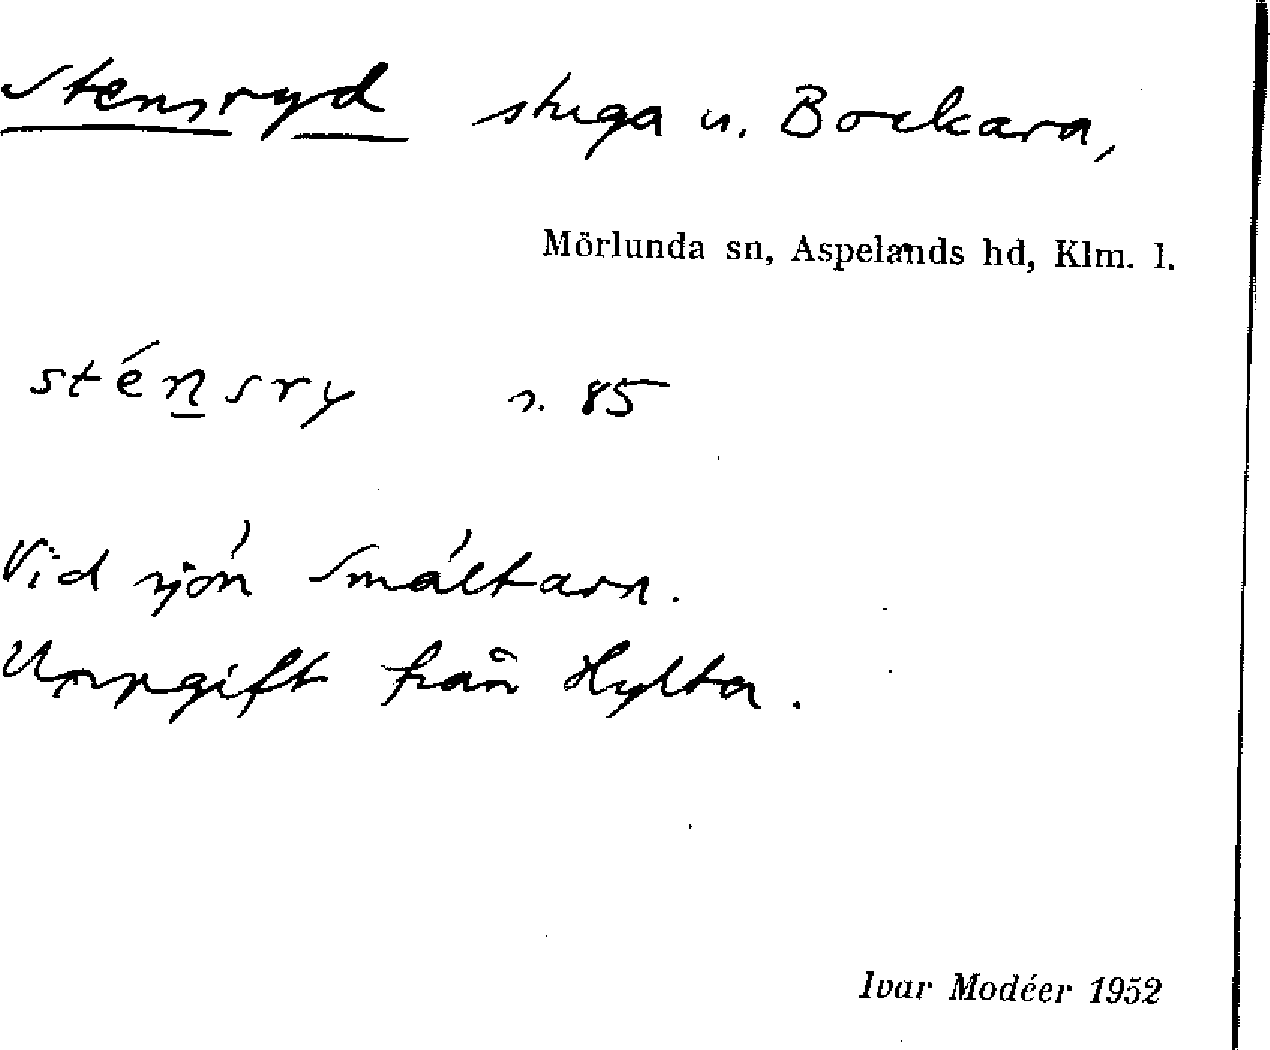 Stensryd stuga u. Bockara,
Mörlunda sn, Aspelands hd, Klm. l.
sténsry s. 85
Vid sjön Smáltarn.
Uppgift från Hylta.
Ivar Modéer 1952